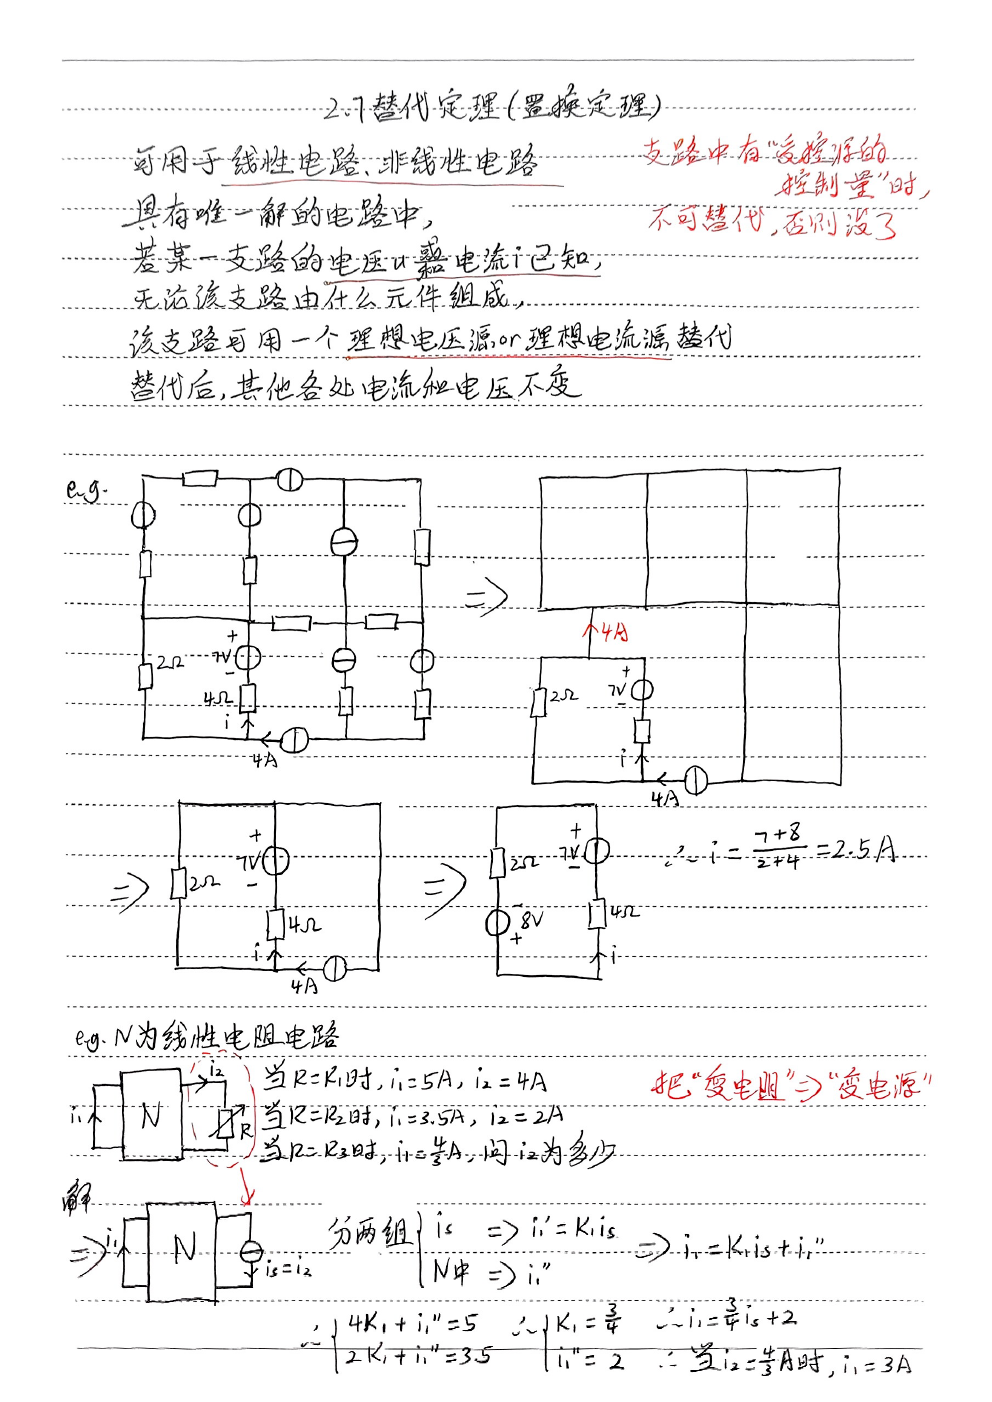 2.7替代定理(置换定理)
可用于线性电路、非线性电路
支路中有"受控源的
控制量"时,
不可替代,否则没了
具有唯一解的电路中,
若某一支路的电压u 电流i已知,
无论该支路由什么元件组成,
该支路可用一个理想电压源or理想电流源替代
替代后,其他各处电流和电压不变
e.g.
2Ω
+
7V
-
4Ω
i
4A
⇒
4A
2Ω
+
7V
-
i
4A
⇒
2Ω
+
7V
-
4Ω
i
4A
⇒
2Ω
-
8V
+
+
7V
-
4Ω
i
∴ i = (7+8)/(2+4) = 2.5A
e.g. N为线性电阻电路
i₁
N
i₂
R
当R=R₁时, i₁=5A, i₂=4A
当R=R₂时, i₁=3.5A, i₂=2A
当R=R₃时, i₁=4/3A, 问i₂为多少
把"变电阻"⇒"变电源"
解
⇒
i₁
N
is=i₂
分两组 { is ⇒ i₁'=K₁is
N中 ⇒ i₁''
⇒ i₁=K₁is+i₁''
∴ { 4K₁+i₁''=5
2K₁+i₁''=3.5
∴ { K₁=3/4
i₁''=2
∴ i₁=3/4 is+2
∴ 当i₂=4/3A时, i₁=3A